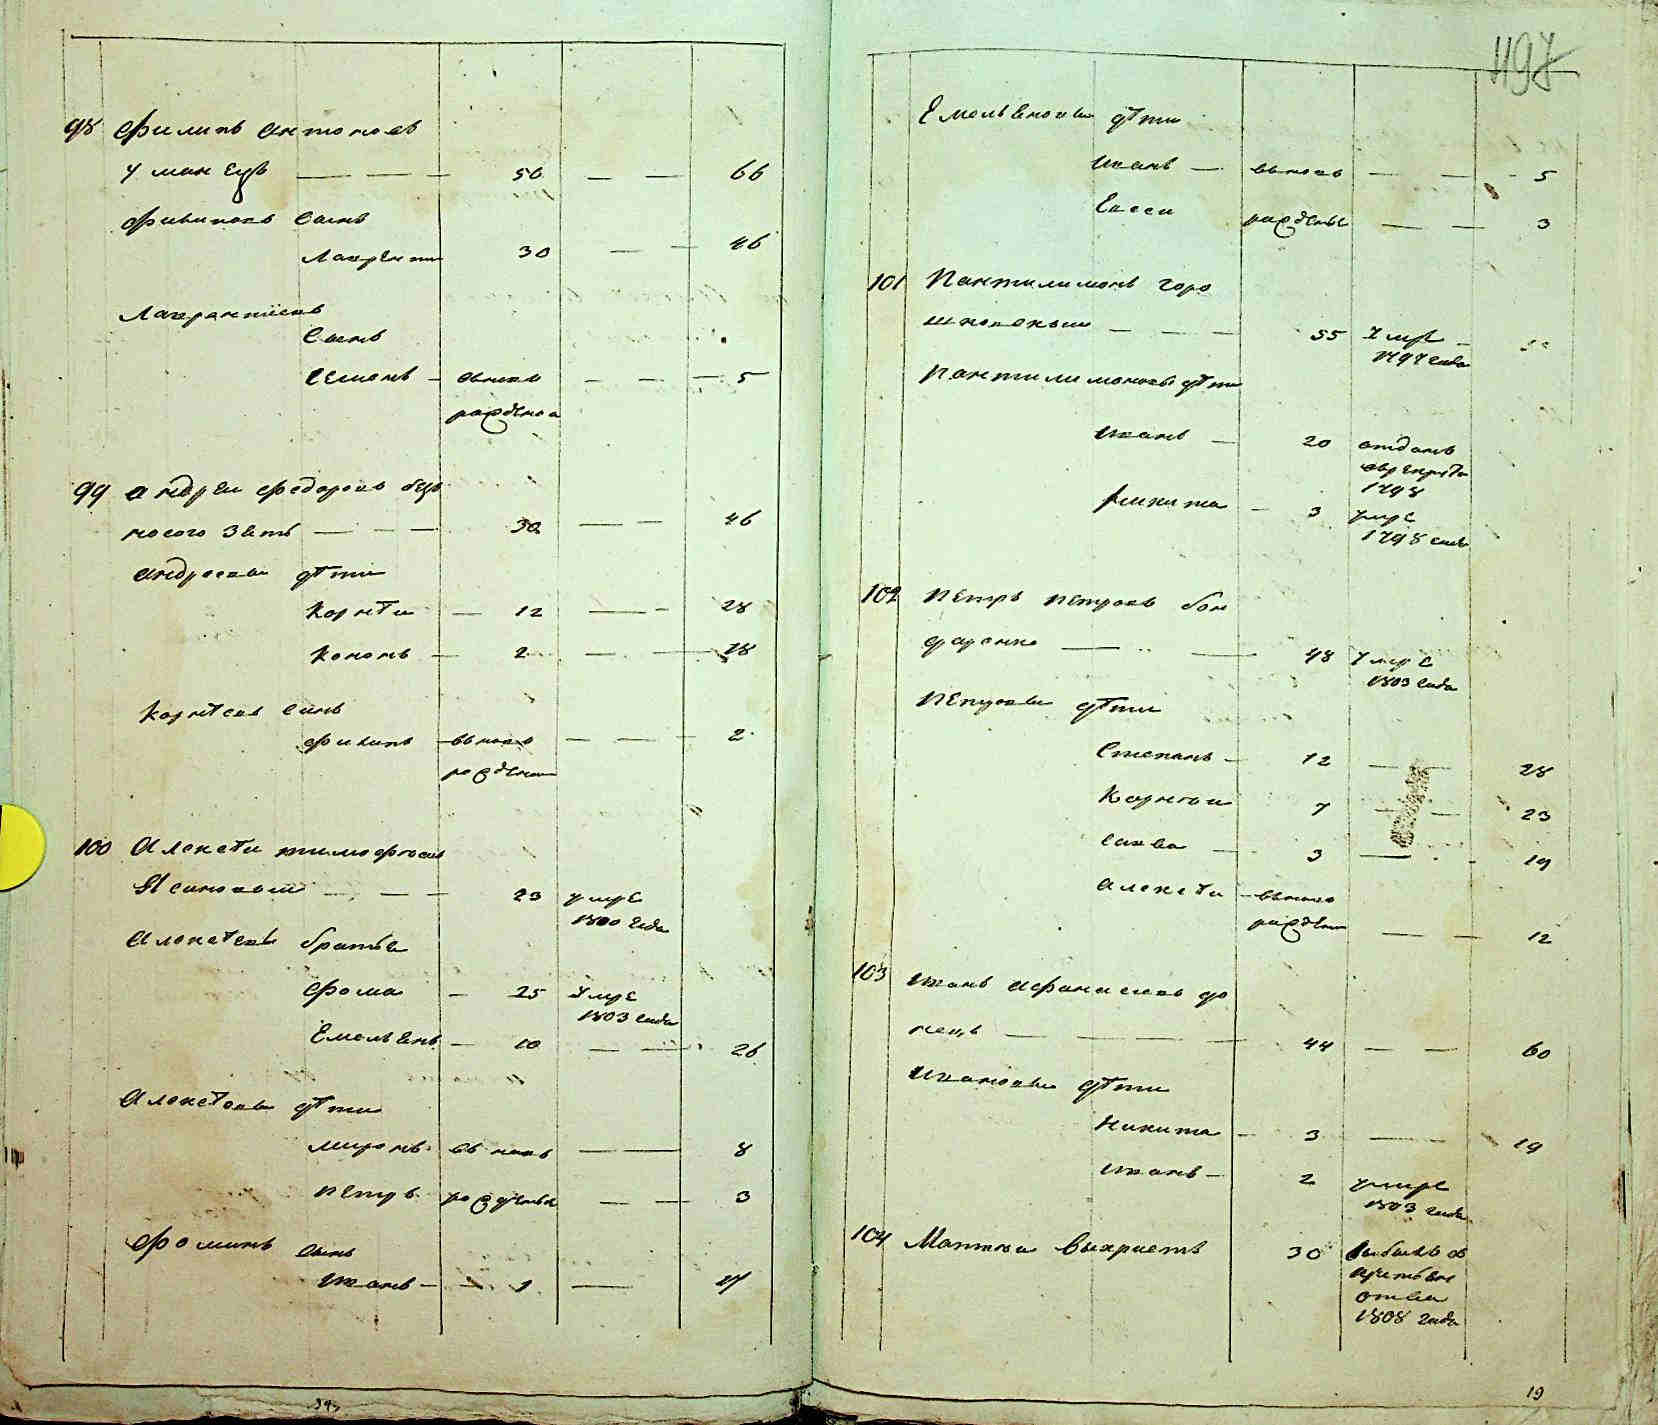 98 Филипъ Антоновъ
Уманецъ — — — 50 — — 66
Филиповъ Сынъ
Лаврентий 30 — — 46
Лаврентиевъ
Сынъ
Семенъ — вновь — — — 5
рожденой
99 Андрей Федоровъ без
носого Зять — — — 30 — — 46
Андреевы дѣти
Корнѣй — 12 — 28
Кононъ — 2 — — 18
Корнѣевъ Синъ
Филипъ — вновь — — — 2
рожденой
100 Алексѣй Тимофѣевъ
— — — 23 умре
1800 года
Алексѣевы братья
Фома — 25 Умре
1803 года
Емельянъ — 10 — — 26
Алексѣевы дѣти
Миронъ вновь — 8
Петръ рожденые — — 3
Фоминъ сынъ
Иванъ — — 1 — 17
497
Емельяновы дѣти
Иванъ — вновь — — — 5
Евсей рожденые — — 3
101 Пантилимонъ Горо
— — — 55 Умре —
1797 года
Пантилимоновы дѣти
Иванъ — 20 отданъ
в рекруты
1798
Никита — 3 умре
1798 года
102 Петръ Петровъ Бон
даренко — — 48 Умре
1803 года
Петровы дѣти
Степанъ — 12 — — 28
Корнѣй 7 — — 23
Савва — 3 — 19
Алексѣй — вновь
рожденой — — 12
103 Иванъ Афанасиевъ До
нецъ — — — — 44 — — 60
Ивановы дѣти
Никита — 3 — 19
Иванъ — 2 умре
1803 года
104 Матвей Выхристъ 30
1808 года
19